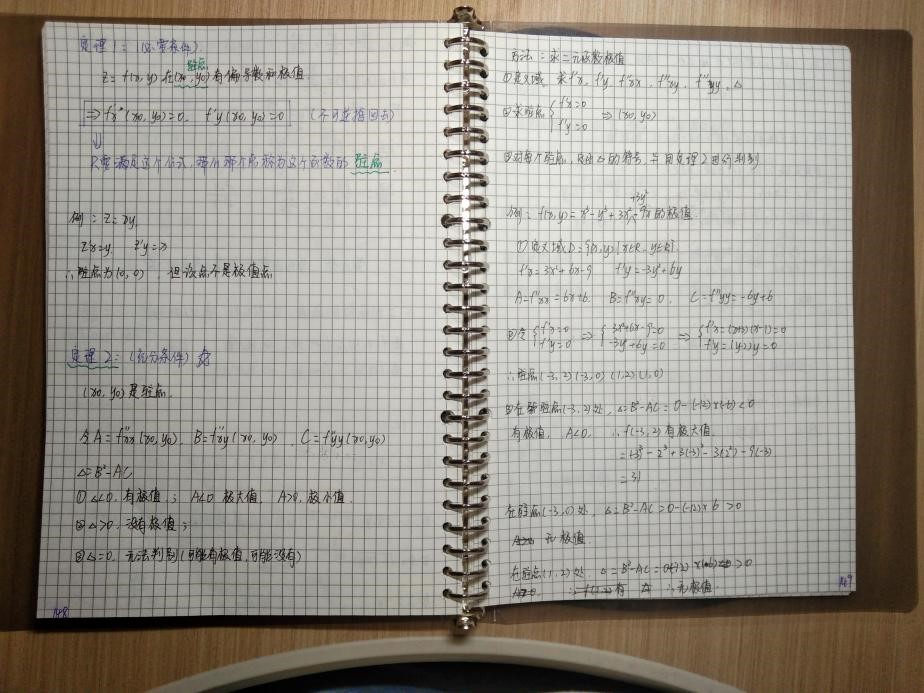 定理1：(必要条件)
驻点
Z=f(x,y)在(x0,y0)有偏导数和极值
⇒f'x(x0,y0)=0, f'y(x0,y0)=0 (不可逆推回去)
⇓
只要满足这个公式，那么那个点称为这个函数的驻点.
例：Z=xy,
Z'x=y Z'y=x
∴驻点为(0,0)，但该点不是极值点
定理2：(充分条件) ☆
(x0,y0)是驻点.
令A=f''xx(x0,y0), B=f''xy(x0,y0), C=f''yy(x0,y0)
△=B²-AC,
①△<0,有极值；A<0 极大值, A>0,极小值.
②△>0,没有极值；
③△=0,无法判别(可能有极值,可能没有)
148
方法：求二元函数极值
①定义域，求f'x, f'y f''xx, f''xy, f''yy, △
②求驻点{f'x=0 ⇒(x0,y0)
f'y=0
③对每个驻点，△的符号，用定理2进行判别
+3y²
例：f(x,y)=x³-y³+3x²-9x的极值.
①定义域D={(x,y)|x∈R, y∈R}
f'x=3x²+6x-9 f'y=-3y²+6y
A=f''xx=6x+6, B=f''xy=0, C=f''yy=-6y+6
②令{f'x=0 ⇒ {3x²+6x-9=0 ⇒ {f'x=(x+3)(x-1)=0
f'y=0 -3y²+6y=0 f'y=(y-2)y=0
∴驻点(-3,2)(-3,0)(1,2)(1,0)
③在驻点(-3,2)处，△=B²-AC=0-(-12)×(-6)<0
有极值, A<0, ∴f(-3,2)有极大值.
=(-3)³-2³+3(-3)²-3(2²)-9(-3)
=31
在驻点(-3,0)处，△=B²-AC=0-(-12)×6>0
无极值
在驻点(1,2)处，△=B²-AC=>0
∴无极值.
149